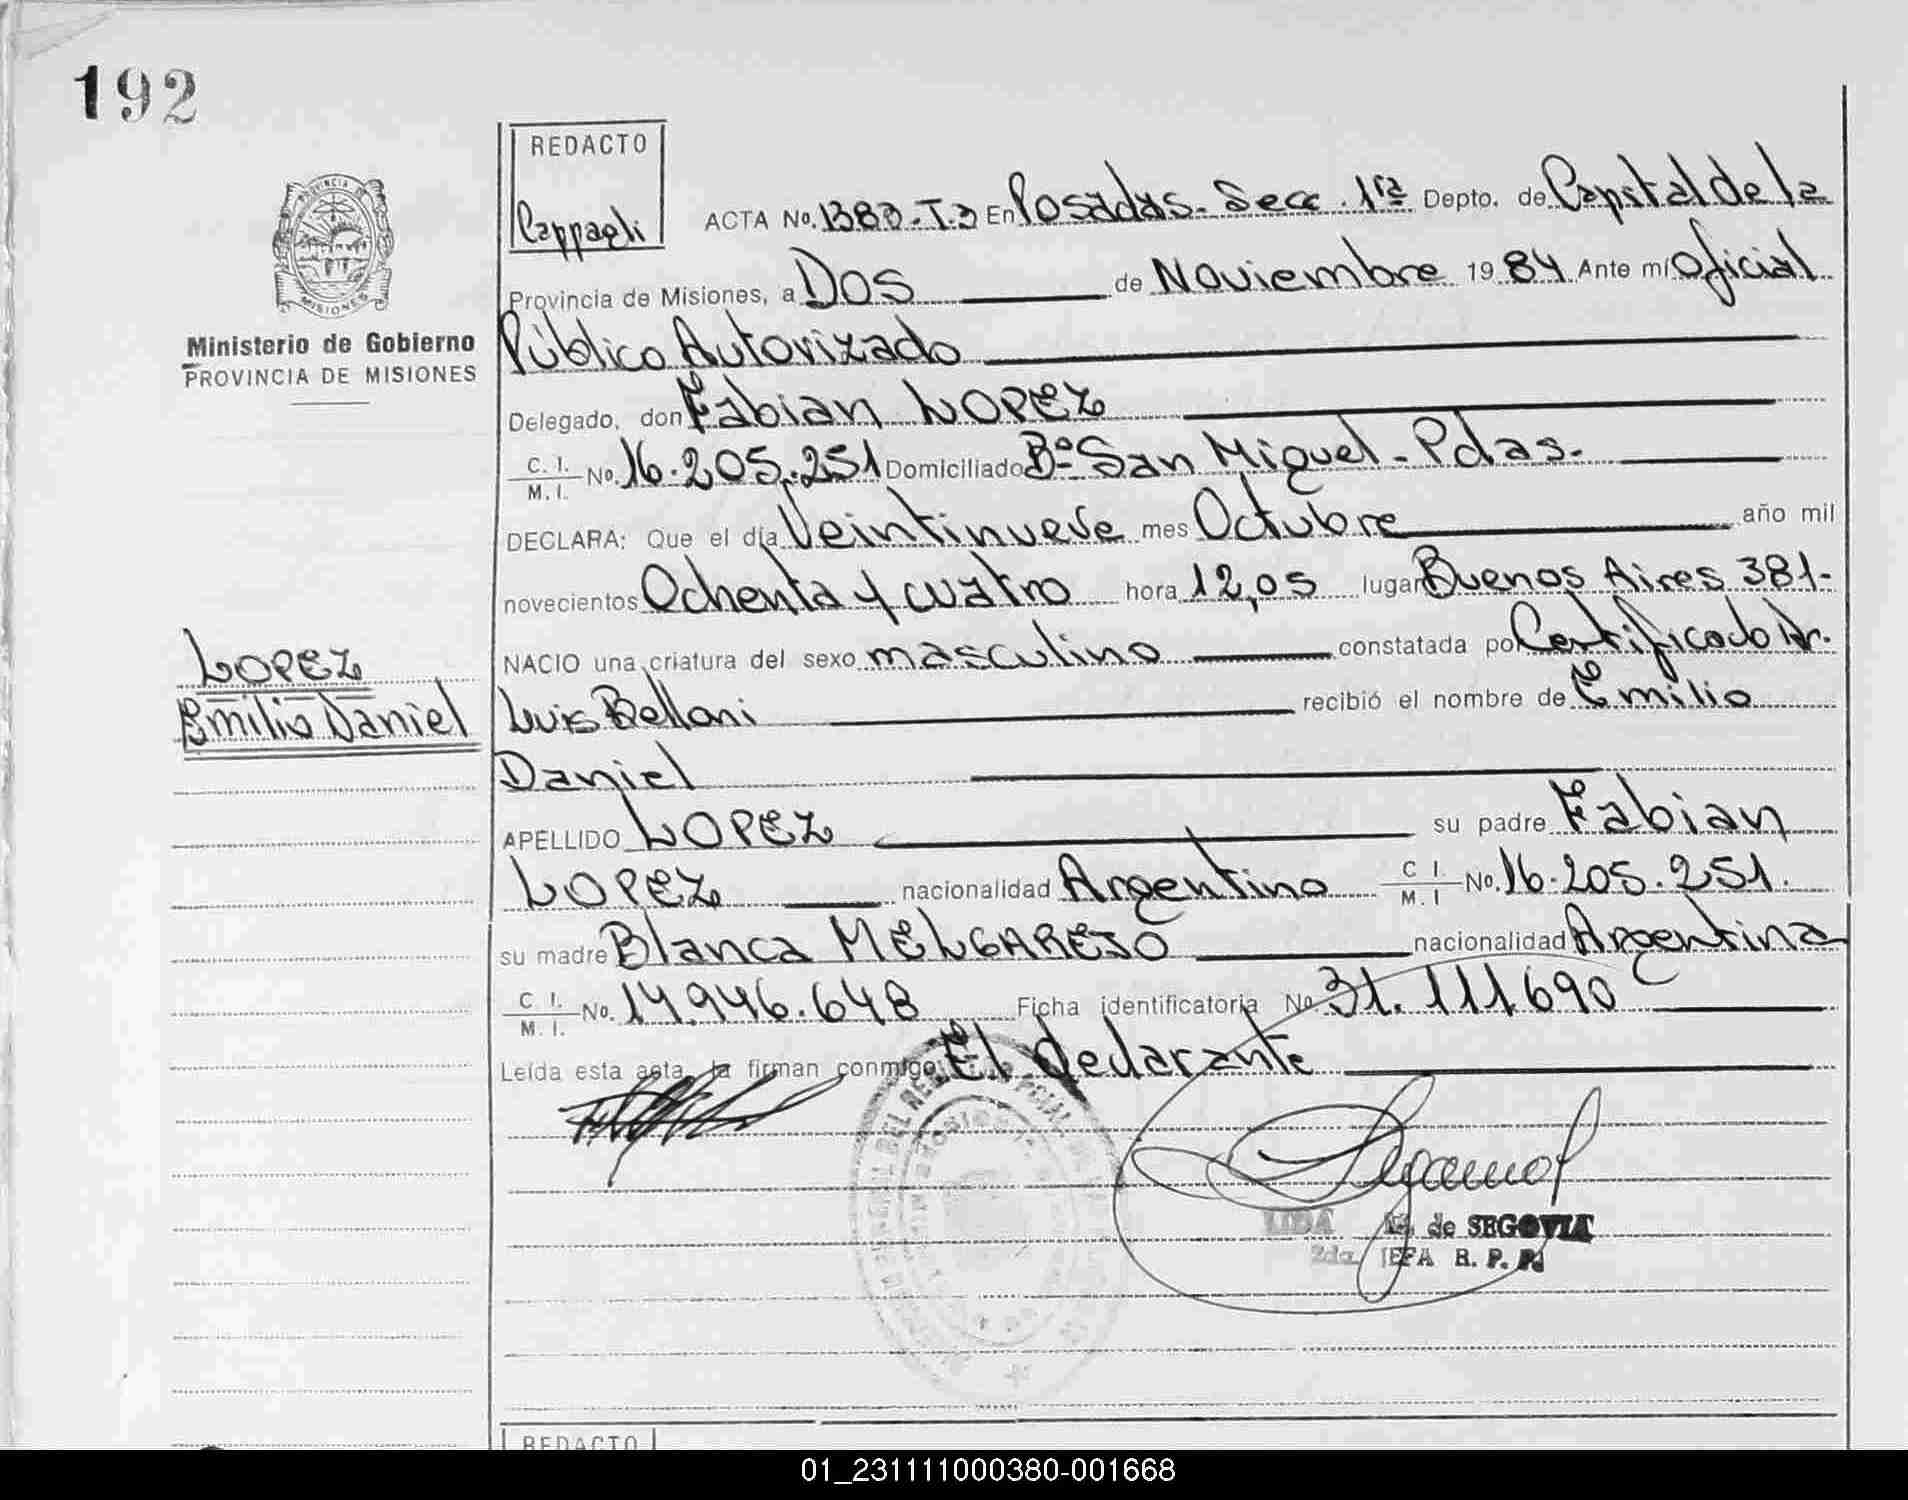 192
REDACTO
Cappagli
ACTA No. 1383-T.3 En Posadas. Secc. 1ra Depto. de Capital de la
Provincia de Misiones, a Dos de Noviembre 1984 Ante mí Oficial
Público Autorizado
Delegado, don Fabian LOPEZ
C. I. M. I. No. 16.205.251 Domiciliado Bº San Miguel - Pdas.
DECLARA: Que el día Veintinueve mes Octubre año mil
novecientos Ochenta y cuatro hora 12,05 lugar Buenos Aires 381-
NACIO una criatura del sexo masculino constatada por Certificado Dr.
Luis Bellani recibió el nombre de Emilio
Daniel
APELLIDO LOPEZ su padre Fabian
LOPEZ nacionalidad Argentino C I. M. I No. 16.205.251.
su madre Blanca MELGAREJO nacionalidad Argentina
C. I. M. I. No. 14.946.648 Ficha identificatoria No. 31.111690
Leída esta acta, la firman conmigo: El declarante
LIDA M. de SEGOVIA
2da. JEFA R. P. P.
REDACTO
PROVINCIA DE
MISIONES
Ministerio de Gobierno
PROVINCIA DE MISIONES
LOPEZ
Emilio Daniel
01_231111000380-001668